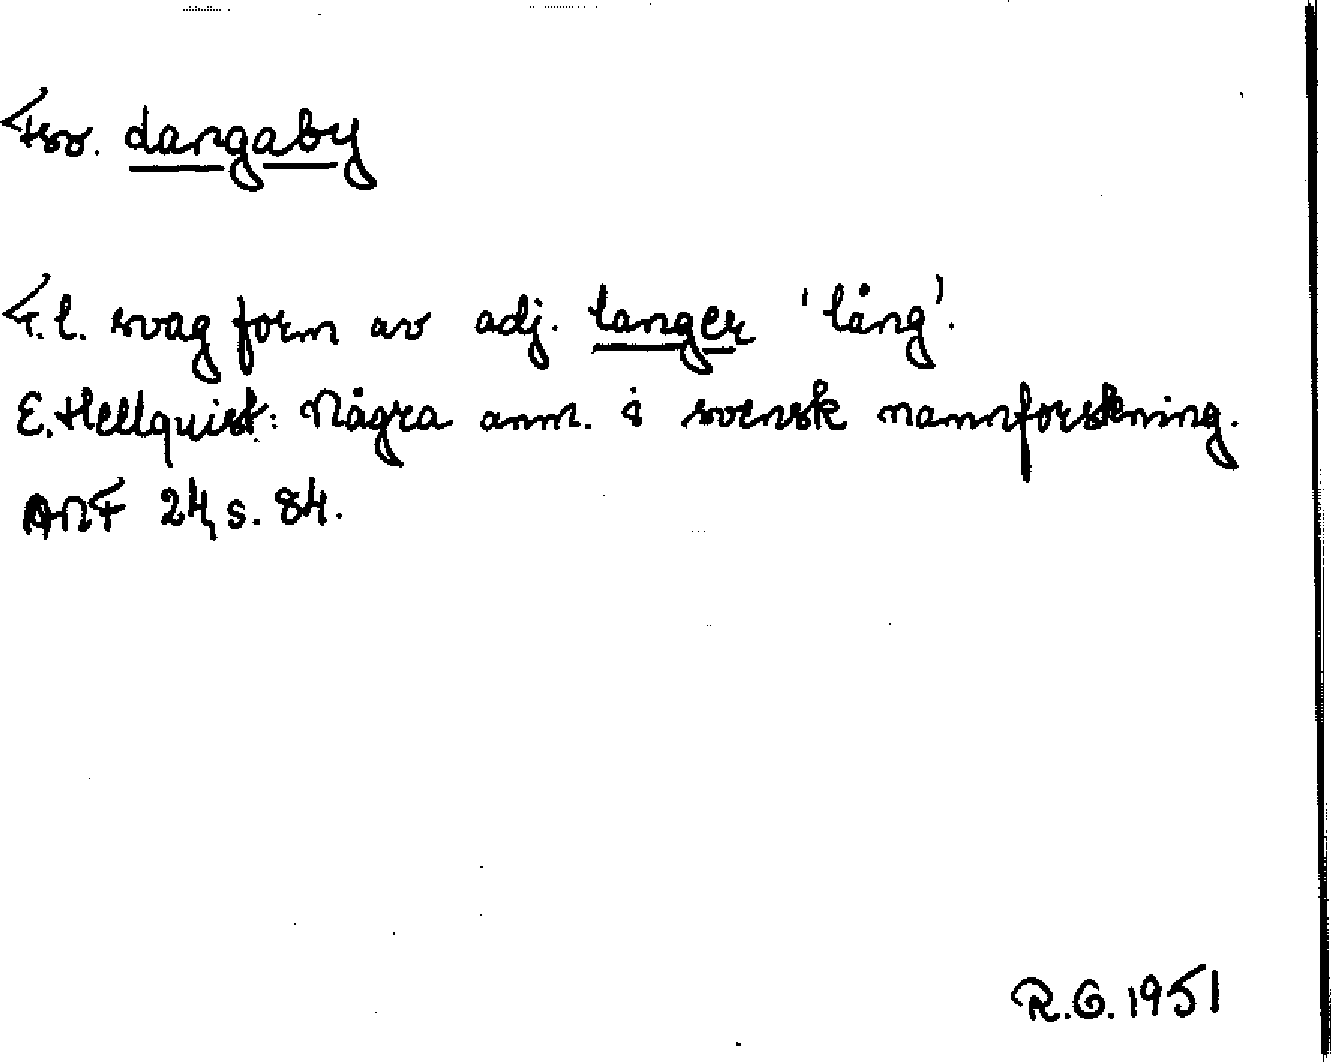 Fsv. dangaby
F.l. svag form av adj. langer 'lång'.
E. Hellquist: Några anm. i svensk namnforskning.
ANF 24, s. 84.
R.G. 1951